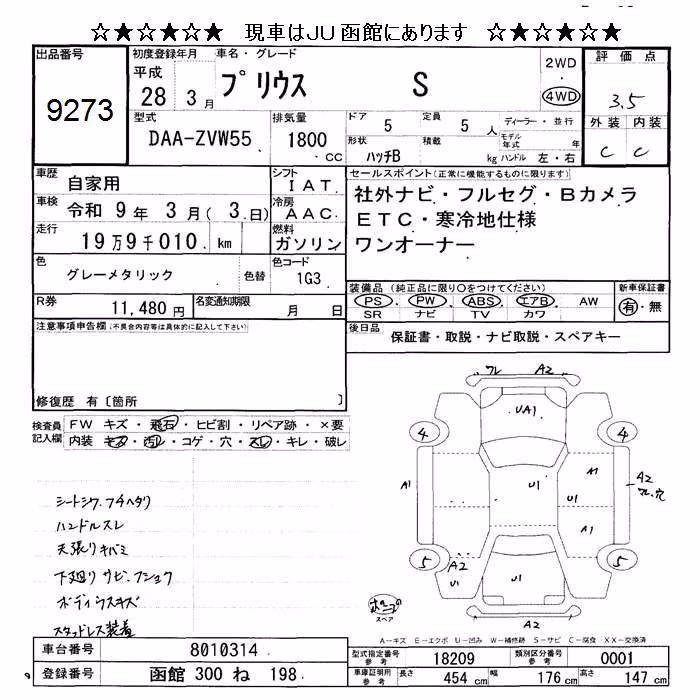 ☆★☆★☆★ 現車はJU函館にあります ☆★☆★☆★
出品番号 9273
初度登録年月 平成 28年 3月
車名・グレード プリウス S
2WD・4WD
評価点 3.5
外装 C 内装 C
型式 DAA-ZVW55
排気量 1800 cc
ドア 5
定員 5 人
形状 ハッチB
積載 kg
ディーラー・並行
モデル年式 年
ハンドル 左・右
車歴 自家用
シフト IAT
車検 令和 9年 3月( 3日)
冷房 AAC
走行 19万9千010 km
燃料 ガソリン
色 グレーメタリック 色替
色コード 1G3
R券 11,480円
名変通知期限 月 日
セールスポイント(正常に機能するものに限ります)
社外ナビ・フルセグ・Bカメラ
ETC・寒冷地仕様
ワンオーナー
装備品(純正品に限り○をつけてください) 新車保証書
PS・PW・ABS・エアB・AW 有・無
SR ナビ TV カワ
後日品 保証書・取説・ナビ取説・スペアキー
注意事項申告欄(不具合内容等は具体的に記入して下さい)
修復歴 有〔箇所 〕
検査員記入欄
FW キズ・飛石・ヒビ割・リペア跡・×要
内装 キズ・汚レ・コゲ・穴・スレ・キレ・破レ
シートシワ.フチヘタリ
ハンドルスレ
天張りキバミ
下廻り サビ.フショク
ボディウスキズ
スタッドレス装着
ワレ A2
UA1
4 4
A1 U1 A1 A2
ワレ.穴
U1
5 5
A2
U1 U1
A2
スペア
A-キズ E-エクボ U-凹み W-補修跡 S-サビ C-腐食 XX-交換済
車台番号 8010314
登録番号 函館 300 ね 198
型式指定番号 参考 18209
類別区分番号 参考 0001
車庫証明用 参考 長さ 454 cm 幅 176 cm 高さ 147 cm